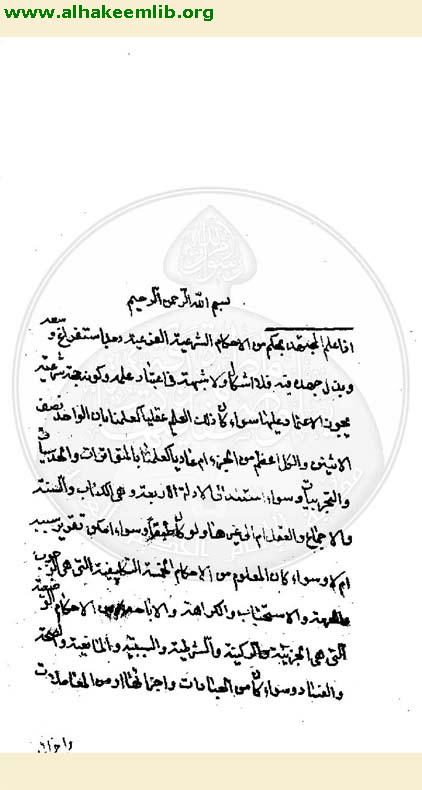 www.alhakeemlib.org
بسم الله الرحمن الرحيم
اذا علم المجتهد بحكم من الاحكام الشرعية الفرعية بعد استفراغ وسعه
وبذل جهده فيه فلا اشكال ولا شبهة في اعتبار علمه وكونه حجة شرعية
يجوز الاعتماد عليها سواء كان ذلك العلم عقليا كعلمنا بان الواحد نصف
الاثنين والكل اعظم من الجزء ام عاديا كعلمنا بالمتواترات والحدسيات
والتجربيات وسواء استند الى الادلة الاربعة وهى الكتاب والسنة
والاجماع والعقل ام الى غيرها ولو كان ظنيا وسواء امكن تقرير سببه
ام لا وسواء كان المعلوم من الاحكام الخمسة التكليفية التى هى الوجوب
والحرمة والاستحباب والكراهة والاباحة من الاحكام الوضعية
التى هى الجزئية والركنية والشرطية والسببية والمانعية والصحة
والفساد وسواء كان من العبادات واجزائها او من المعاملات